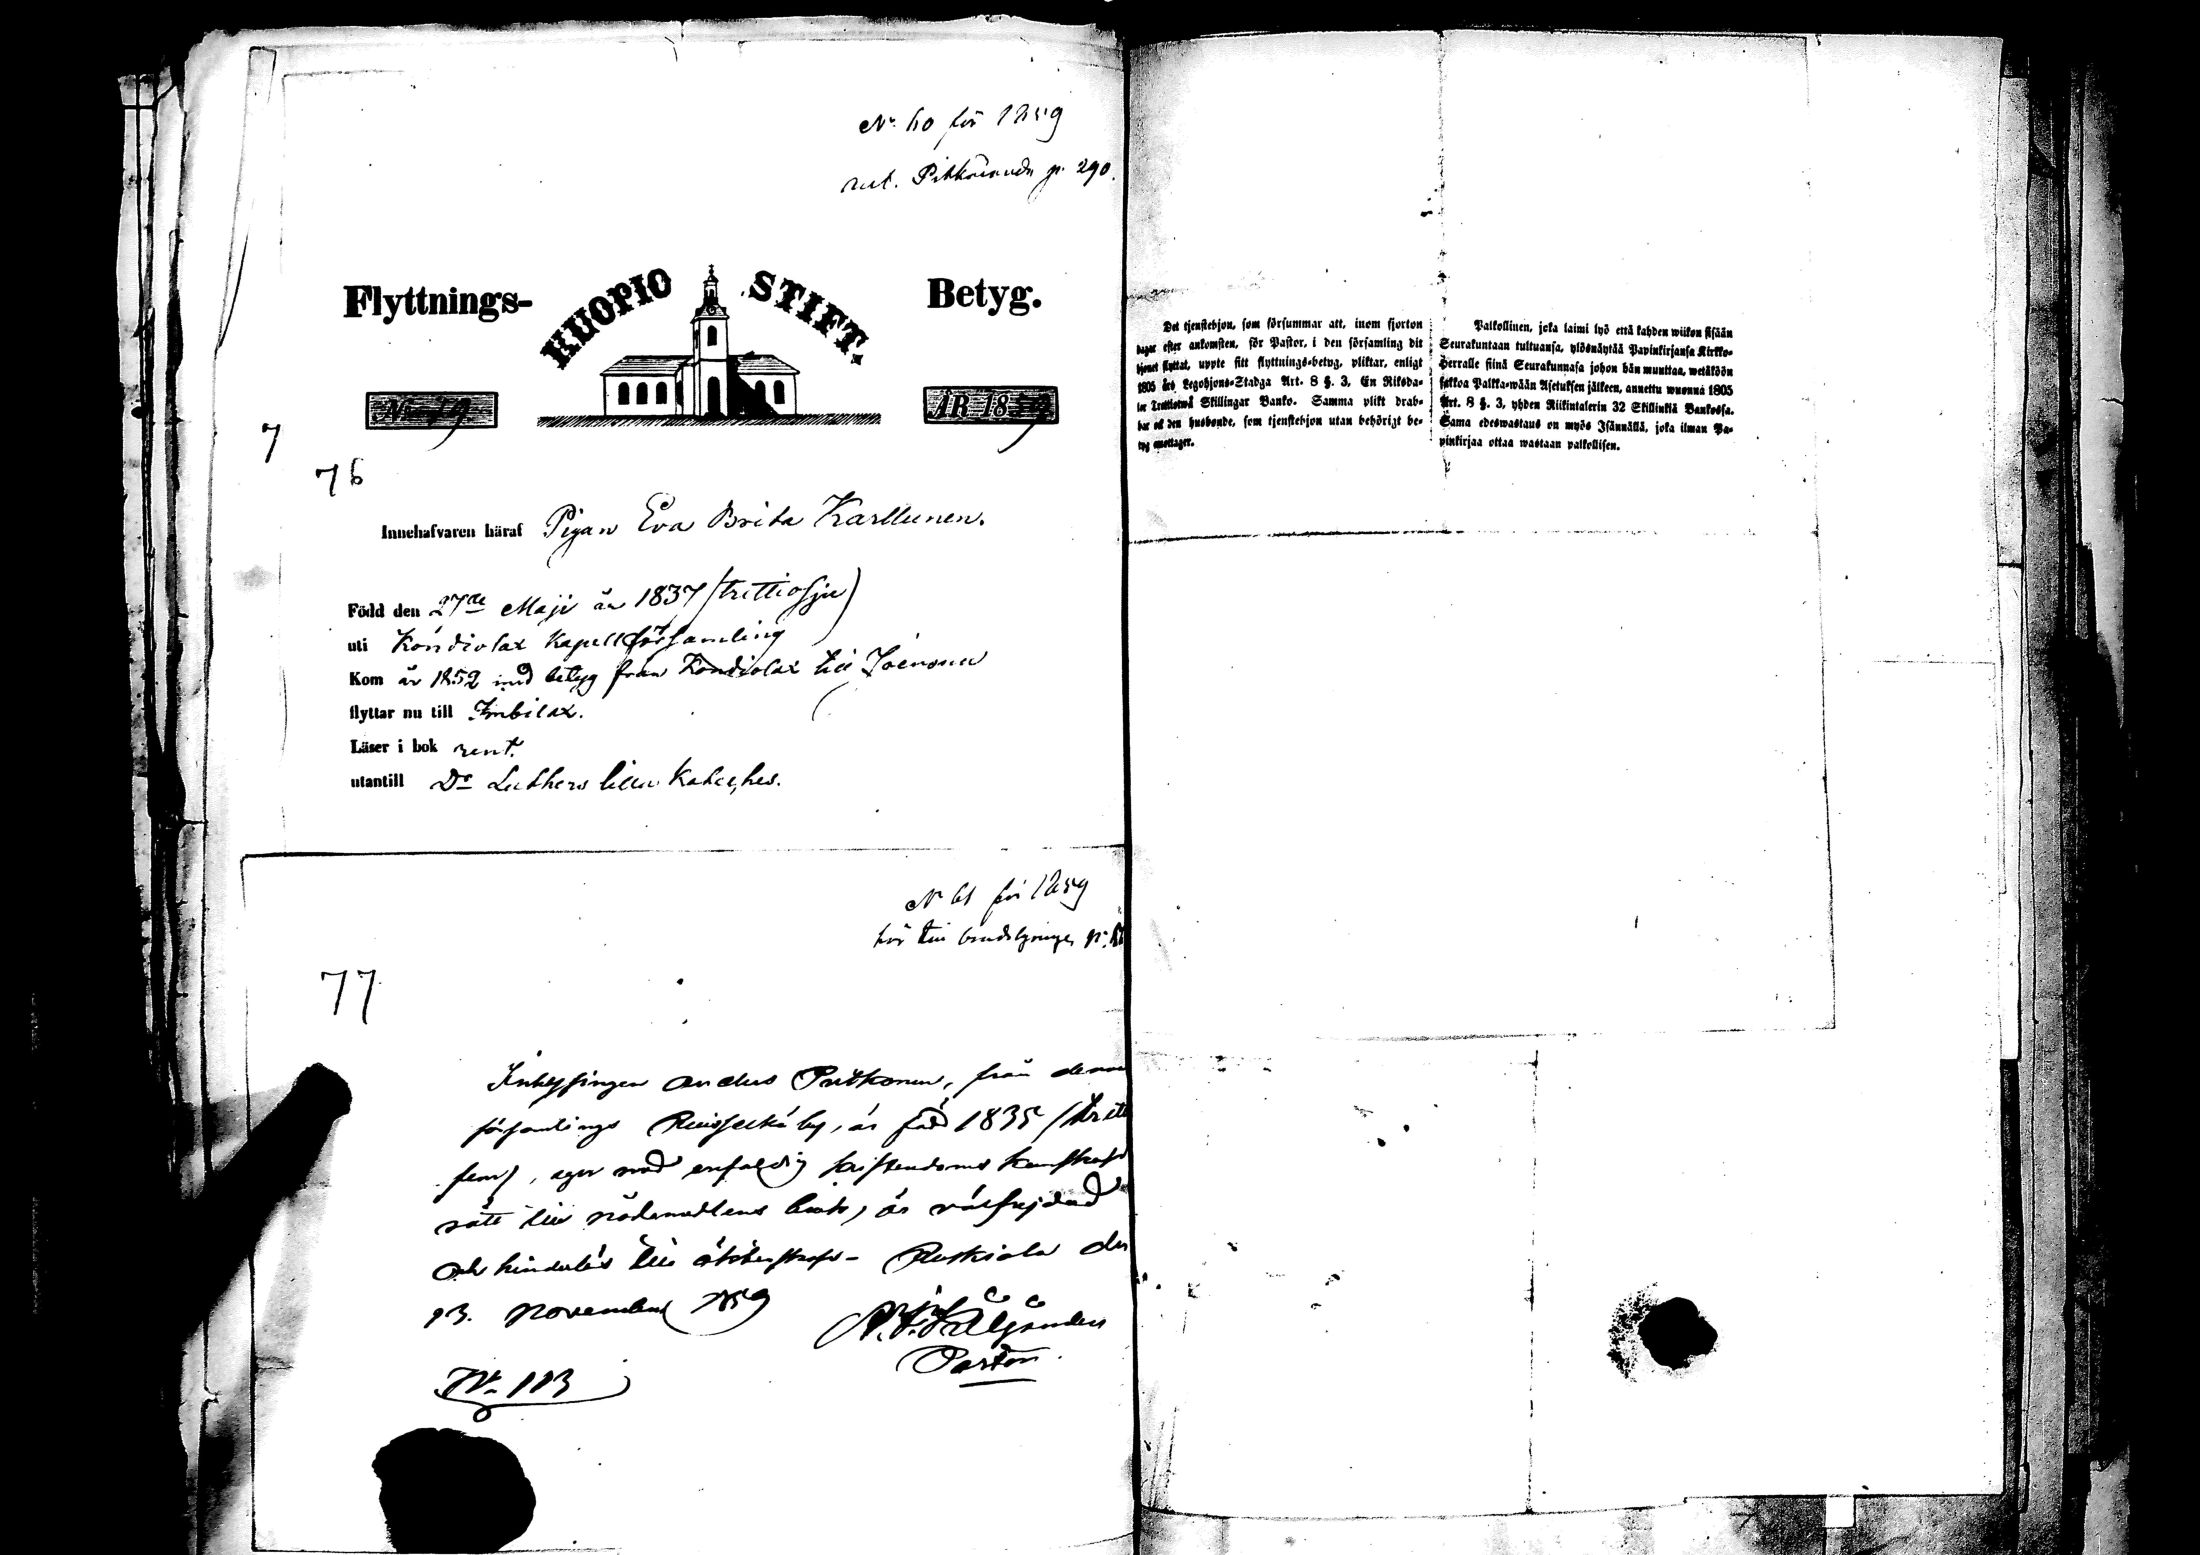 No 60 för 1859
rut. Pitkäranda p. 290.
Flyttnings- KUOPIO STIFT. Betyg.
No 19. ÅR 1859
7
76
Innehafvaren häraf Pigan Eva Brita Karllunen.
Född den 27de Maji år 1837 (trettiosju)
uti Kondiolax Kapellförsamling
Kom år 1852 med betyg från Kondiolax till Joensuu
flyttar nu till Imbilax.
Läser i bok rent.
utantill Dr Luthers lilla Kateches.
No 61 för 1859
för till
77
Inhyssingen Anders Putkonen, från denna
församlings by, är född 1835 (tretti
fem), eger med enfaldig kristendoms kunskap
rätt till nådemedlens bruk, är välfrejdad
och hinderlös till äktenskap- Ruskiala den
13. November 1859
Pastor.
No 113
Det tjenstehjon, som försummar att, inom fjorton
dagar efter ankomsten, för Pastor, i den församling dit
hjonet flyttat, uppte sitt flyttnings-betyg, pliktar, enligt
1805 års Legohjons-Stadga Art. 8 §. 3, En Riksda-
ler Trettiotwå Skillingar Banko. Samma plikt drab-
bar ock den husbonde, som tjenstehjon utan behörigt be-
tyg emottager.
Palkollinen, joka laimi lyö että kahden wiikon sisään
Seurakuntaan tultuansa, ylösnäytää Papinkirjansa Kirkko-
herralle siinä Seurakunnasa johon hän munttaa, wetäköön
sakkoa Palkka-wään Asetuksen jälkeen, annettu wuonna 1805
Art. 8 §. 3, yhden Riikintalerin 32 Skillinkiä Bankossa.
Sama edeswastaus on myös Isännällä, joka ilman Pa-
pinkirjaa ottaa wastaan palkollisen.